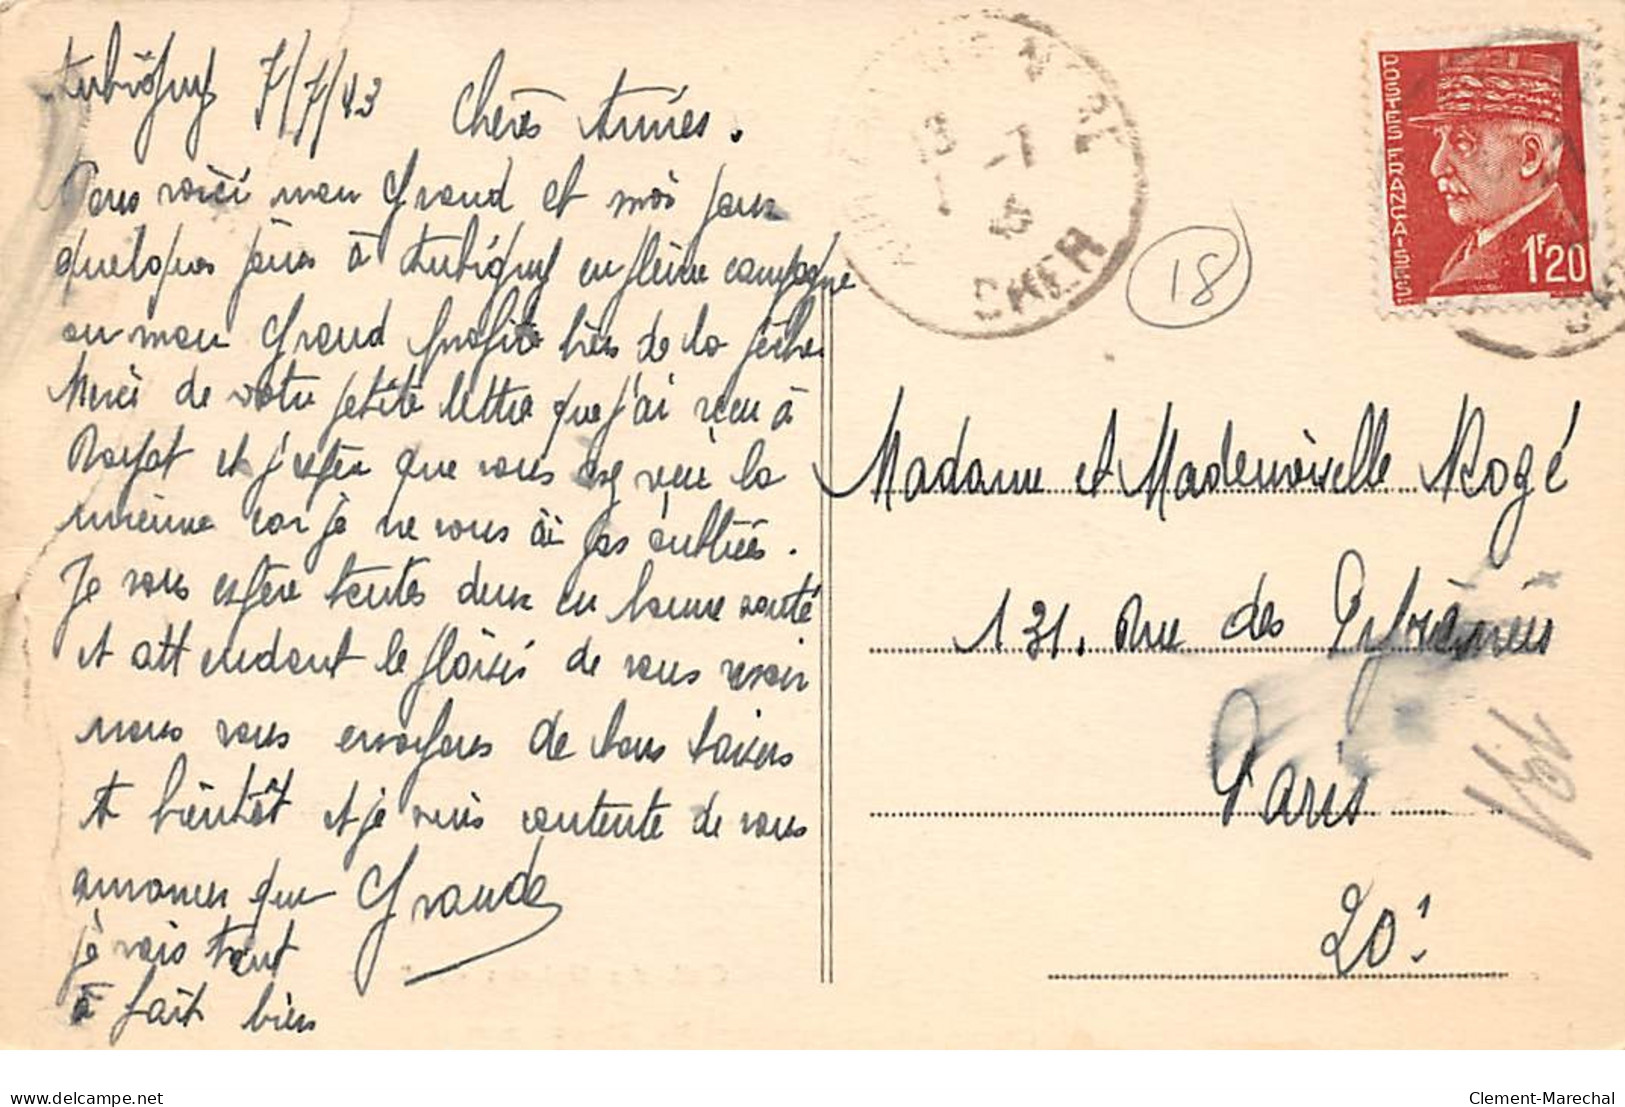 Aubigny 7/7/43 Chères Amies.
Nous voici mon Grand et moi pour
quelques jours à Aubigny en pleine campagne
ou mon Grand profite très de la pêche
Merci de votre petite lettre que j'ai reçu à
Royat et j'espère que vous avez reçu la
mienne car je ne vous ai pas oubliées.
Je vous espère toutes deux en bonne santé
et attendant le plaisir de vous revoir
nous vous envoyons de bons baisers
A bientôt et je suis contente de vous
annoncer que
je vais tout
à fait bien
CHER
18
POSTES FRANÇAISES
1F20
Madame et Mademoiselle Rogé
131. Rue des Pyrénées
Paris
20e
Clement-Marechal